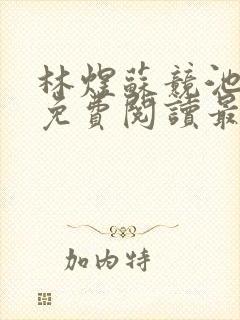 林煜蘇競池
免費閱讀最
加內特